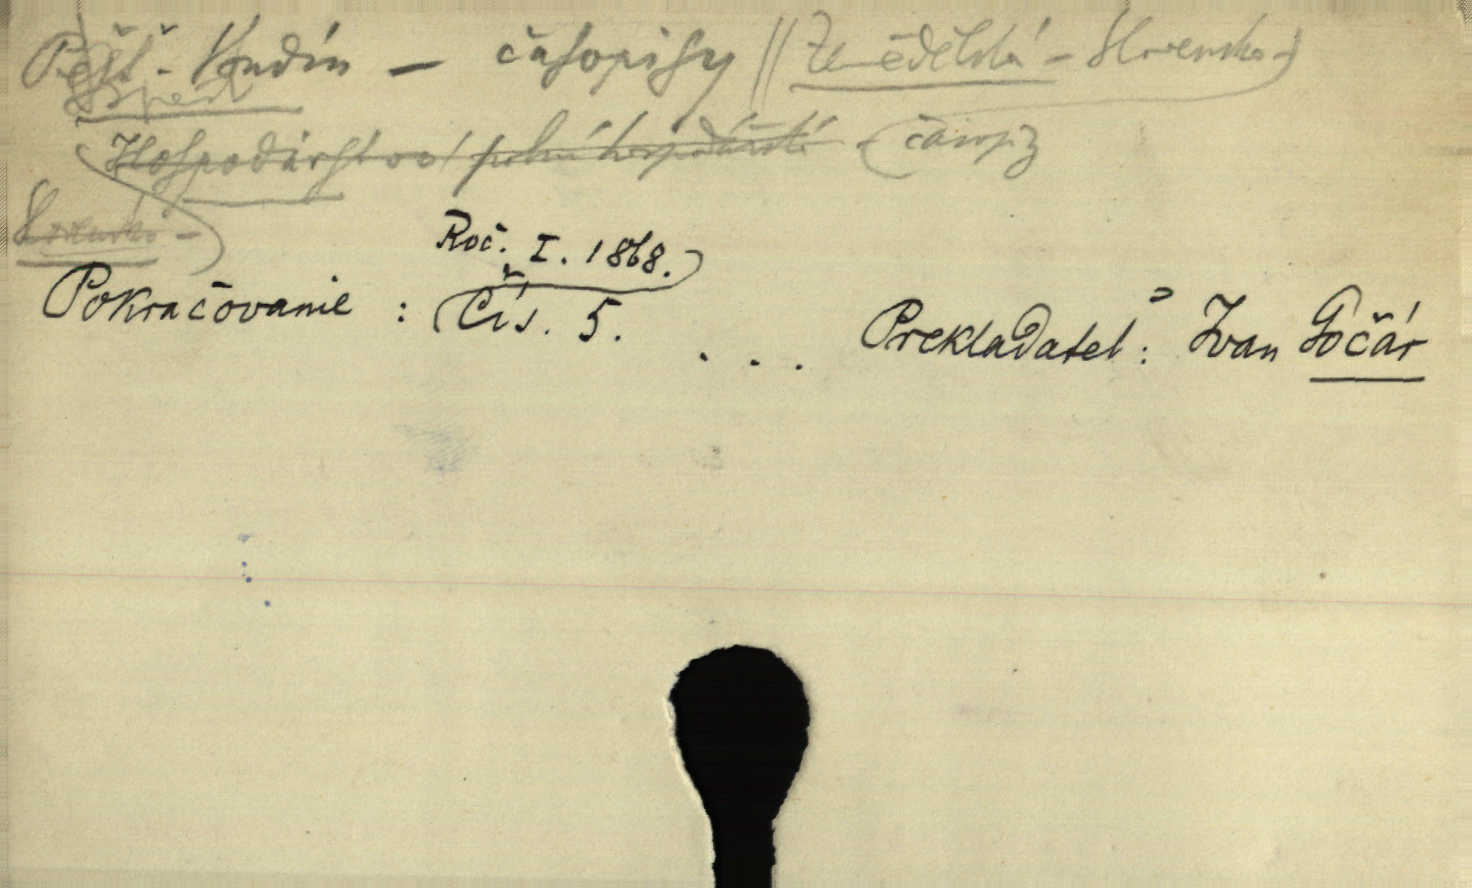 Pešť-Budín — časopisy || Zemědělská - Slovensko -
Hospodárstvo / polní hospodářství - časopisy
Slovensko -
Roč. I. 1868.
Pokračovanie : Čís. 5.
. . . Prekladateľ : Ivan Gočár